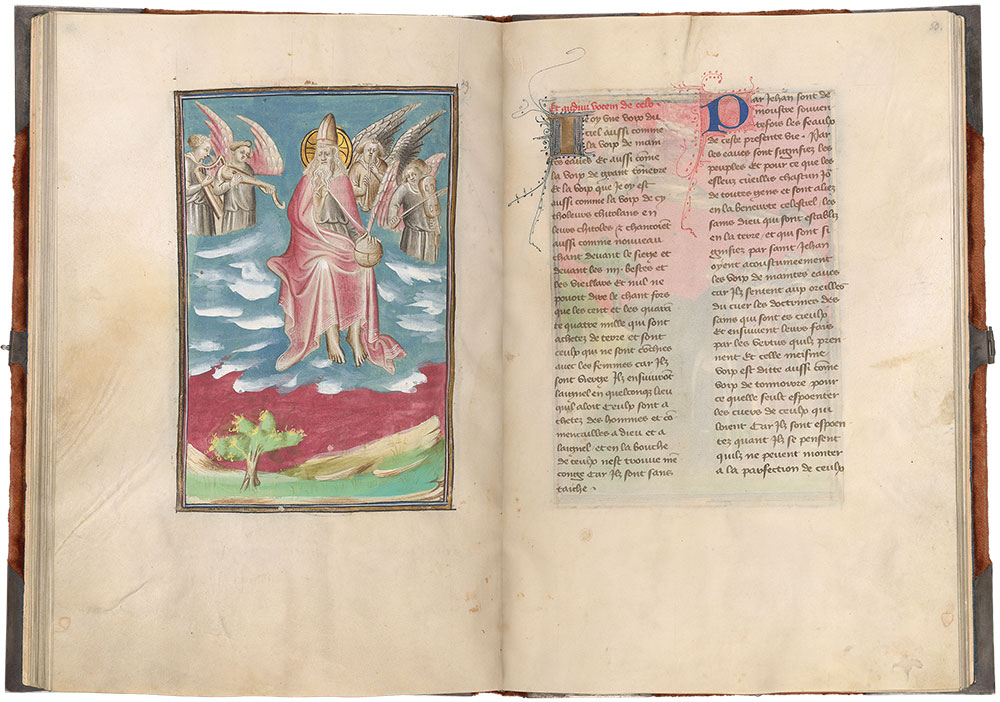 50.
Et audiui vocem de celo.
Je oy vne voix du
ciel aussi comme
la voix de main
tes eaues Et aussi cōme
la voix de grant tonetre
Et la voix que Je oy est
aussi comme la voix de cy
tholeurs chitolans en
leurs chitoles & chantoiēt
aussi comme nouueau
chant deuant le siege et
deuant les iiij. bestes et
les vieillars Et nul ne
pouoit dire le chant fors
que les cent et les quara
te quatre mille qui sont
achetez de terre et sont
ceulx qui ne sont cōchies
auec les femmes car Ilz
sont vierge Ilz ensuiuront
laignel en quelconque lieu
quil aloit Ceulx sont a
chetez des hommes et cō
mencailles a dieu et a
laignel et en la bouche
de ceulx nest trouue mē
conge Car Ilz sont sans
taiche.
Par Jehan sont de
moustre souuen
tefois les
de ceste presente vie. Par
les eaues sont signifiez les
peuples Et pour ce que les
esleuz cueillis chascun Jo
de toutes gens et sont aliez
en la beneurte celestiel. les
sans dieu qui sont establiz
en la terre / et qui sont si
gnifiez par saint Jehan
oyent acoustumeement
les voix de maintes eaues
car Ilz sentent aux oreilles
du cuer les doctrines des
sains qui sont es cieulx
Et ensuiuent leurs fais
par les vertus quilz pren
nent Et celle meisme
voix est ditte aussi cōme
voix de tonnoirre pour
ce quelle seult espoenter
les cuers de ceulx qui
loient Car Ilz sont espoen
tez quant Ilz se pensent
quilz ne peuent monter
a la parfection de ceulx